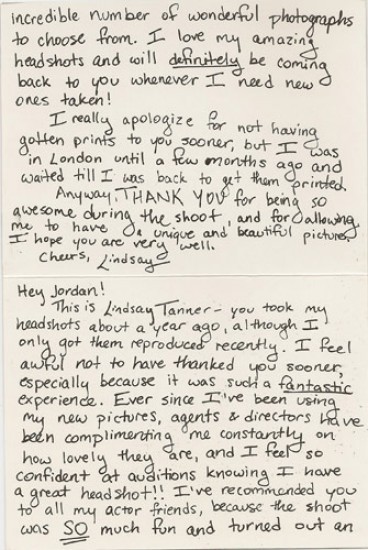 incredible number of wonderful photographs
to choose from. I love my amazing
headshots and will definitely be coming
back to you whenever I need new
ones taken!
I really apologize for not having
gotten prints to you sooner, but I was
in London until a few months ago and
waited till I was back to get them printed.
Anyway, THANK YOU for being so
awesome during the shoot, and for allowing
me to have a unique and beautiful picture.
I hope you are very well.
Cheers, Lindsay
Hey Jordan!
This is Lindsay Tanner - you took my
headshots about a year ago, although I
only got them reproduced recently. I feel
awful not to have thanked you sooner,
especially because it was such a fantastic
experience. Ever since I've been using
my new pictures, agents & directors have
been complimenting me constantly on
how lovely they are, and I feel so
confident at auditions knowing I have
a great headshot!! I've recommended you
to all my actor friends, because the shoot
was SO much fun and turned out an